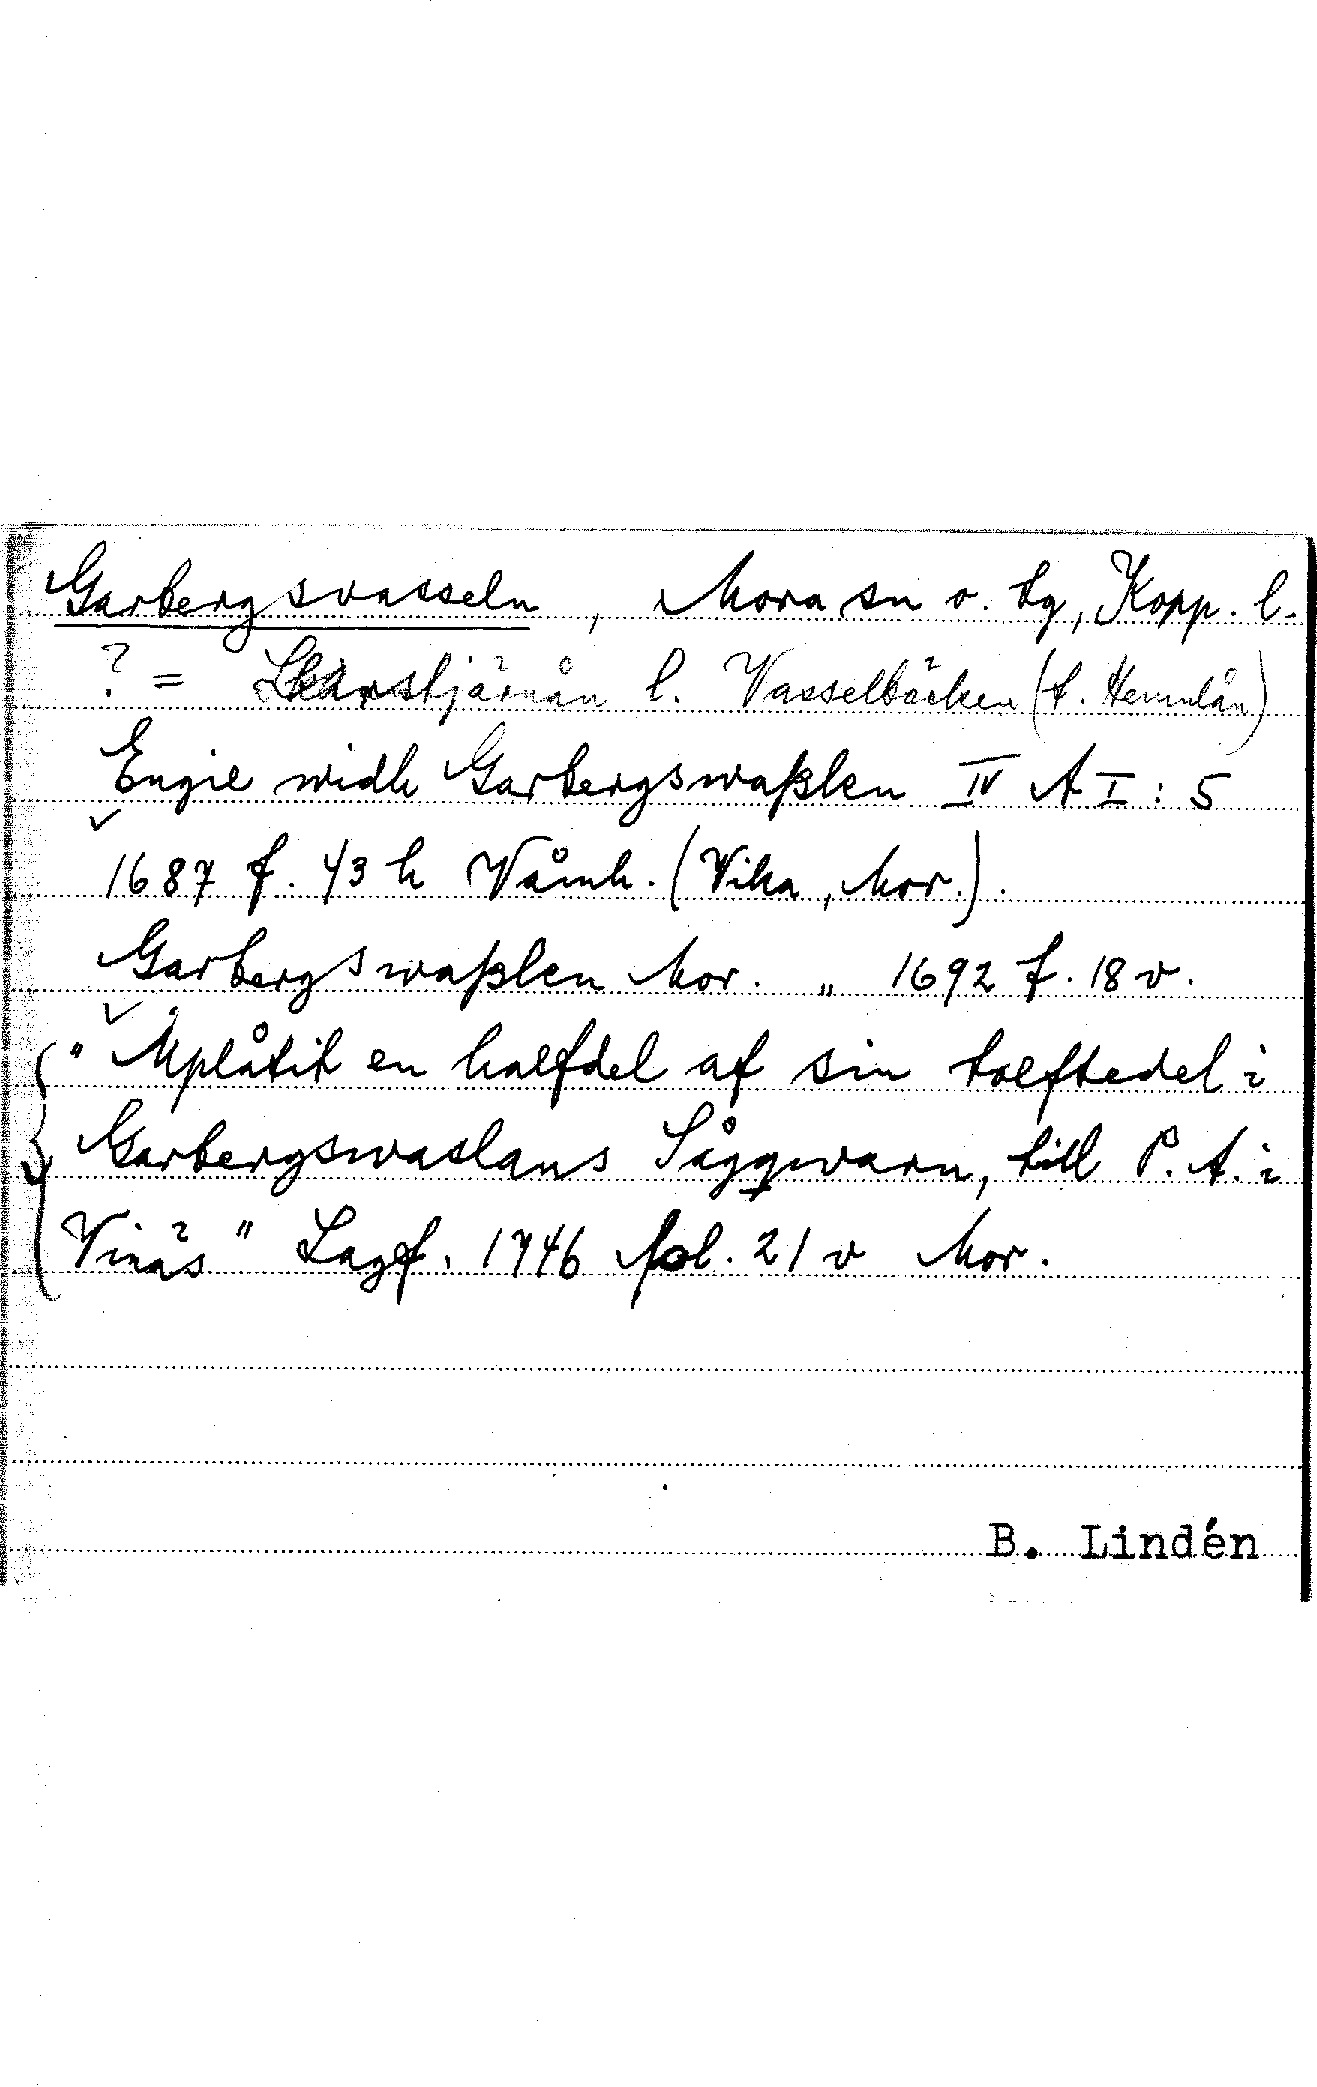 Garbergsvasseln, Mora sn o. tg, Kopp. l.
? = Skärstjärnån l. Vasselbäcken (t. Hemulån)
Engie widh Garbergswaßlen IV A I : 5
1687 f. 43 h Våmh. (Vika, Mor.).
Garbergswaßlen Mor. „ 1692 f. 18 v.
" Uplåtit en halfdel af sin tolftedel i
Garbergswaslans Sågqwarn, till P. A. i
Vinäs " Lagf. 1746 fol. 21 v Mor.
B. Lindén